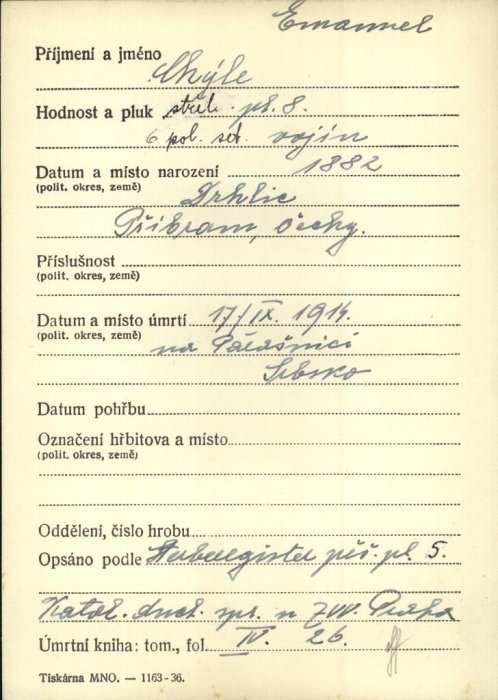 Emanuel
Příjmení a jméno
Chýle
Hodnost a pluk střel. pl. 8.
6 pol. set. vojín
Datum a místo narození 1882
(polit. okres, země)
Drhlic
Příbram, Čechy.
Příslušnost
(polit. okres, země)
Datum a místo úmrtí 17/IX. 1914.
(polit. okres, země)
na
Srbsko
Datum pohřbu
Označení hřbitova a místo
(polit. okres, země)
Oddělení, číslo hrobu
Opsáno podle Sterberegister pěš. pl. 5.
Katol. duch. spr. u ZVV. Praha
Úmrtní kniha: tom., fol. IV. 26.
Tiskárna MNO. — 1163-36.